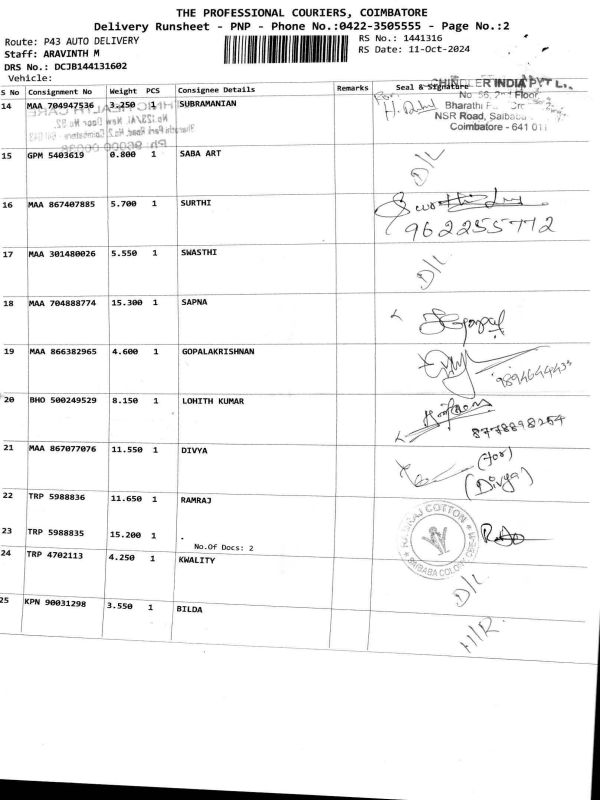 THE PROFESSIONAL COURIERS, COIMBATORE
Delivery Runsheet - PNP - Phone No.:0422-3505555 - Page No.:2
Route: P43 AUTO DELIVERY
RS No.: 1441316
Staff: ARAVINTH M
RS Date: 11-Oct-2024
DRS No.: DCJB144131602
Vehicle:
S No Consignment No Weight PCS Consignee Details Remarks Seal & Signature
14 MAA 704947536 3.250 1 SUBRAMANIAN
INDIA PVT L
No 56, 2nd Floor
Bharathi
NSR Road, Saibaba
Coimbatore - 641 011
15 GPM 5403619 0.800 1 SABA ART
D/L
16 MAA 867407885 5.700 1 SURTHI
9622255772
17 MAA 301480026 5.550 1 SWASTHI
D/L
18 MAA 704888774 15.300 1 SAPNA
19 MAA 866382965 4.600 1 GOPALAKRISHNAN
20 BHO 500249529 8.150 1 LOHITH KUMAR
8778898254
21 MAA 867077076 11.550 1 DIVYA
(for)
(Divya)
22 TRP 5988836 11.650 1 RAMRAJ
RAMRAJ COTTON
SAIBABA COLONY
23 TRP 5988835 15.200 1 .
No.Of Docs: 2
24 TRP 4702113 4.250 1 KWALITY
D/L
25 KPN 90031298 3.550 1 BILDA
H/R